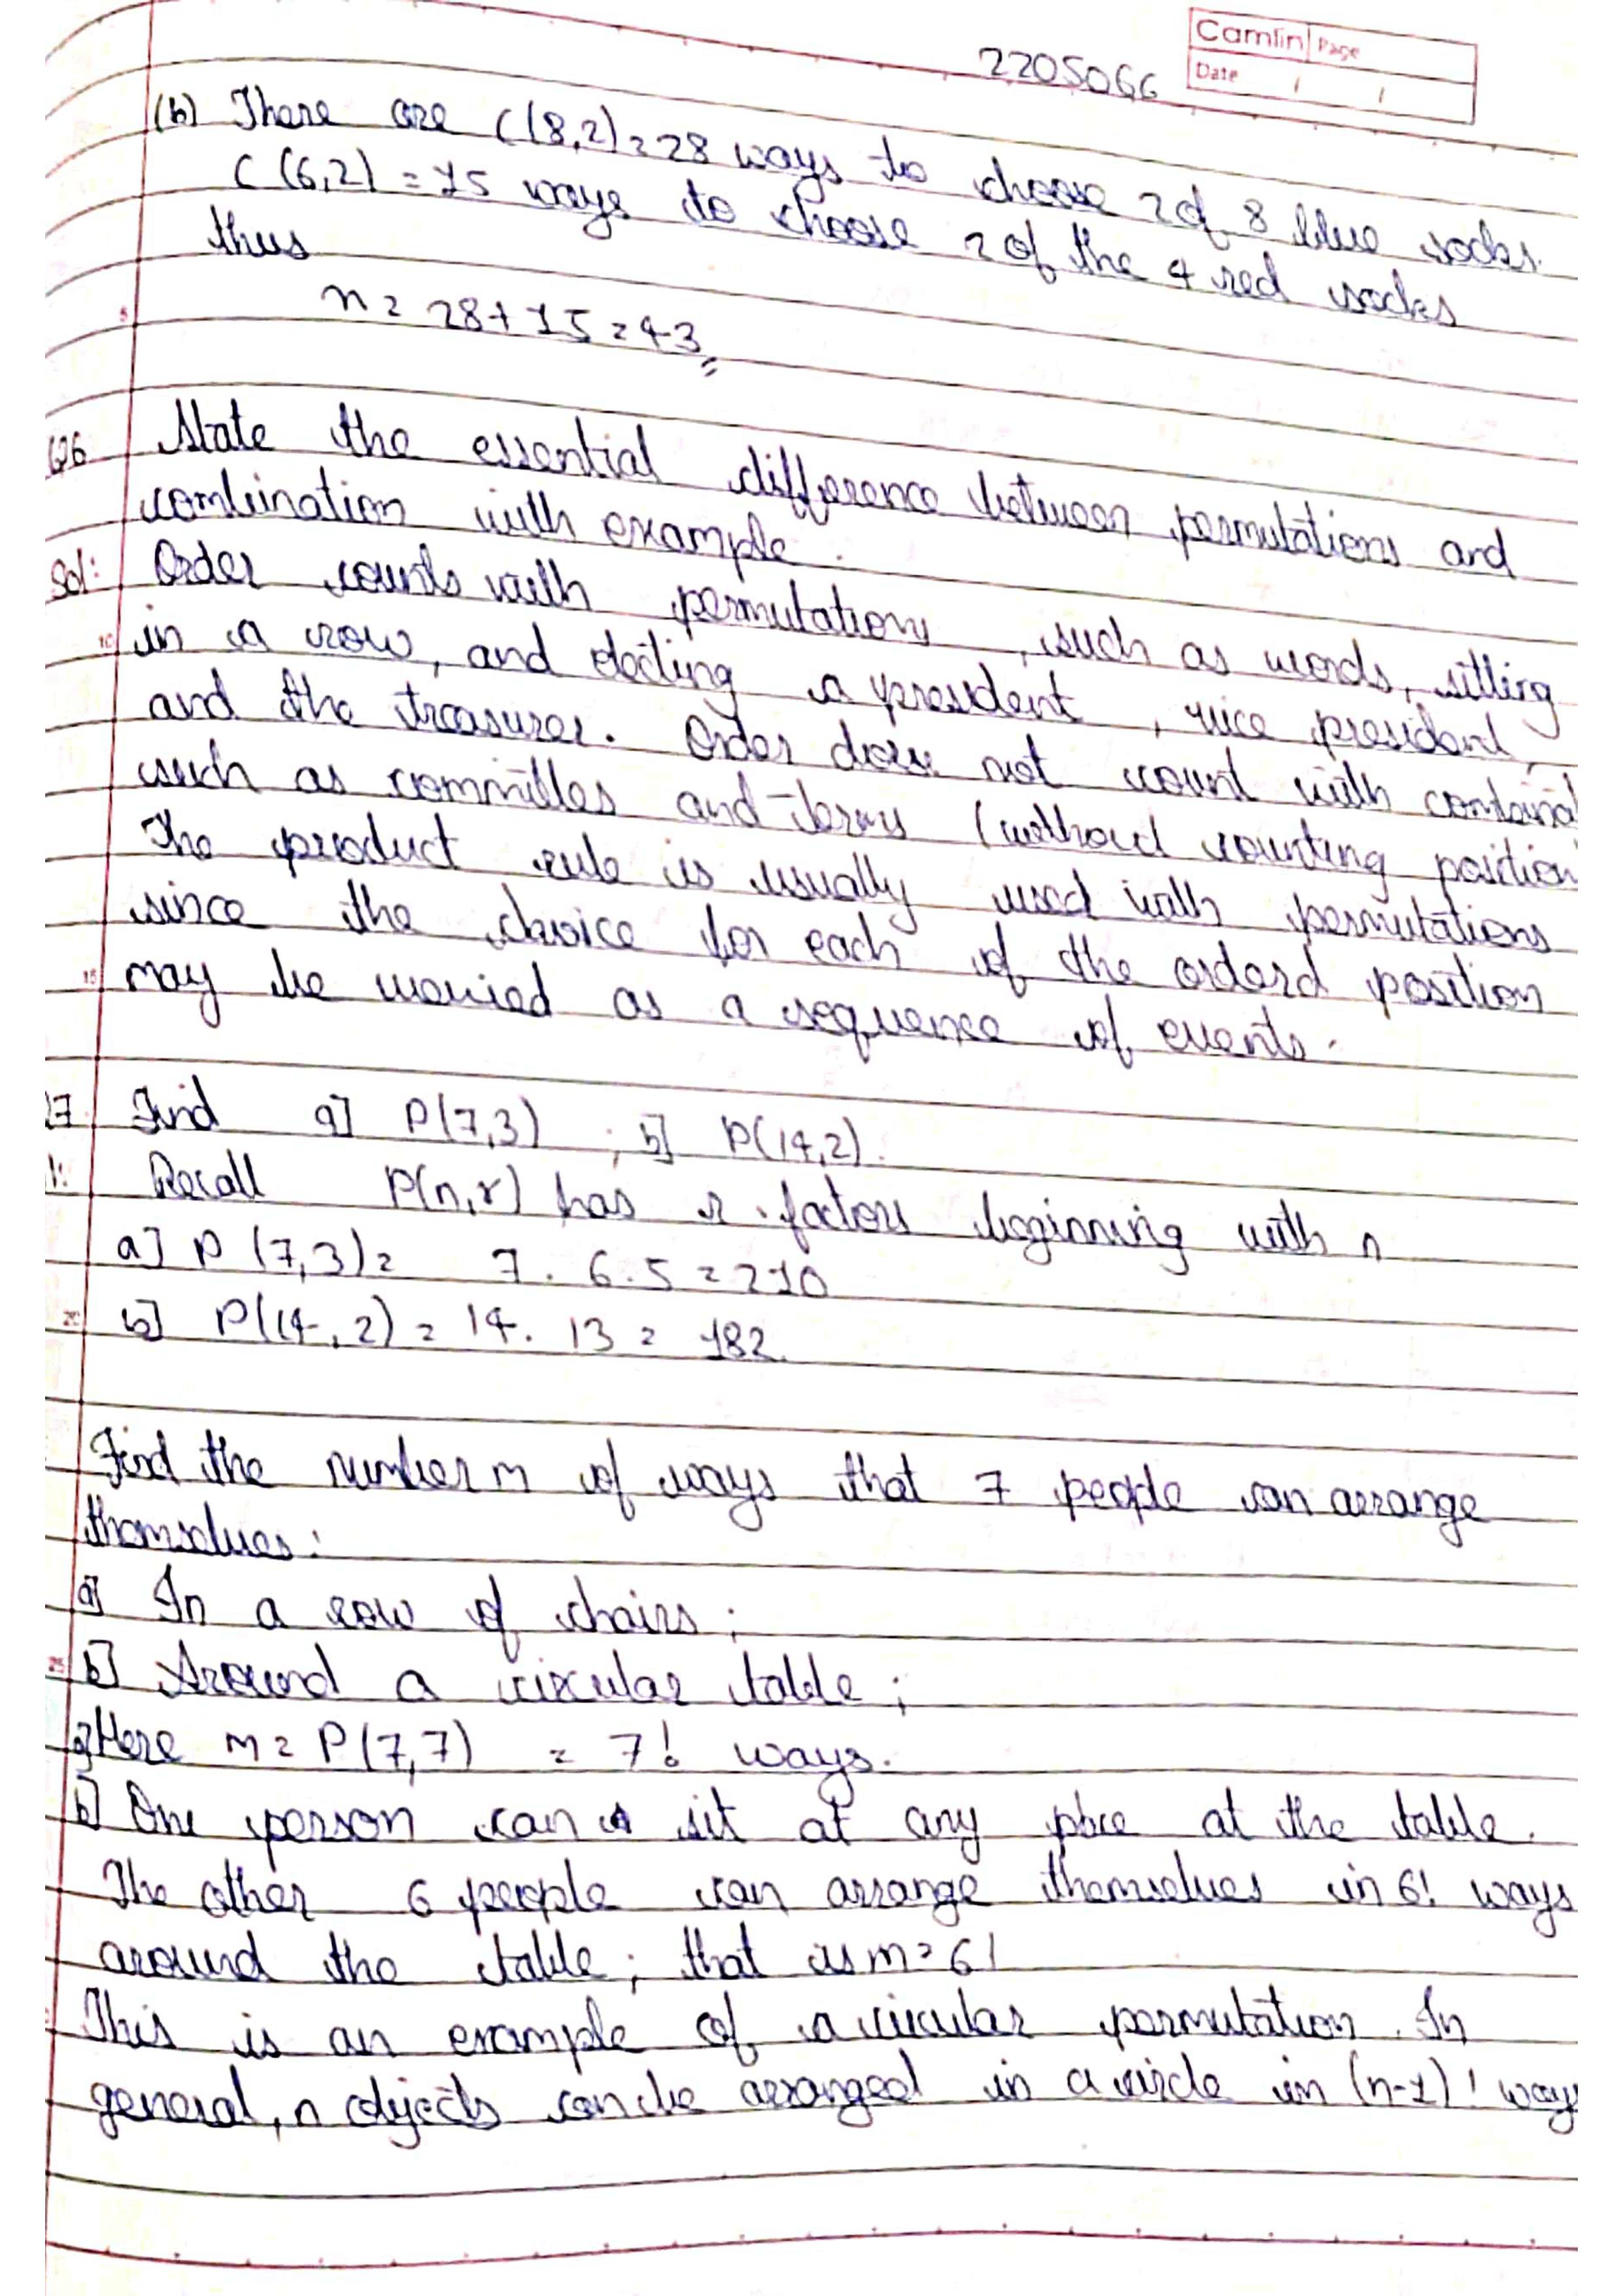 2205066
Camlin Page
Date / /
(b) There are C(8,2)=28 ways to choose 2 of 8 blue socks.
C(6,2) = 15 ways to choose 2 of the 4 red socks
thus
n = 28 + 15 = 43
5
Q6 State the essential difference between permutations and
combination with example.
Sol: Order counts with permutations, such as words, sitting
10 in a row, and electing a president, vice president,
and the treasurer. Order does not count with combina
such as committes and terms (without counting position
The product rule is usually used with permutations
since the choice for each of the orderd position
15 may be as a sequence of events.
17 Find a] P(7,3) ; b] P(14,2).
1: Recall P(n,r) has r factors beginning with n
a] P(7,3) = 7 . 6 . 5 = 210
20 b] P(14,2) = 14 . 13 = 182.
Find the number m of ways that 7 people can arrange
themselves:
a] In a row of chairs;
25 b] Around a circular table;
a] Here m = P(7,7) = 7! ways.
b] One person can sit at any place at the table.
The other 6 people can arrange themselves in 6! ways
around the table; that is m = 6!
This is an example of a circular permutation. In
general, n objects can be arranged in a circle in (n-1)! ways